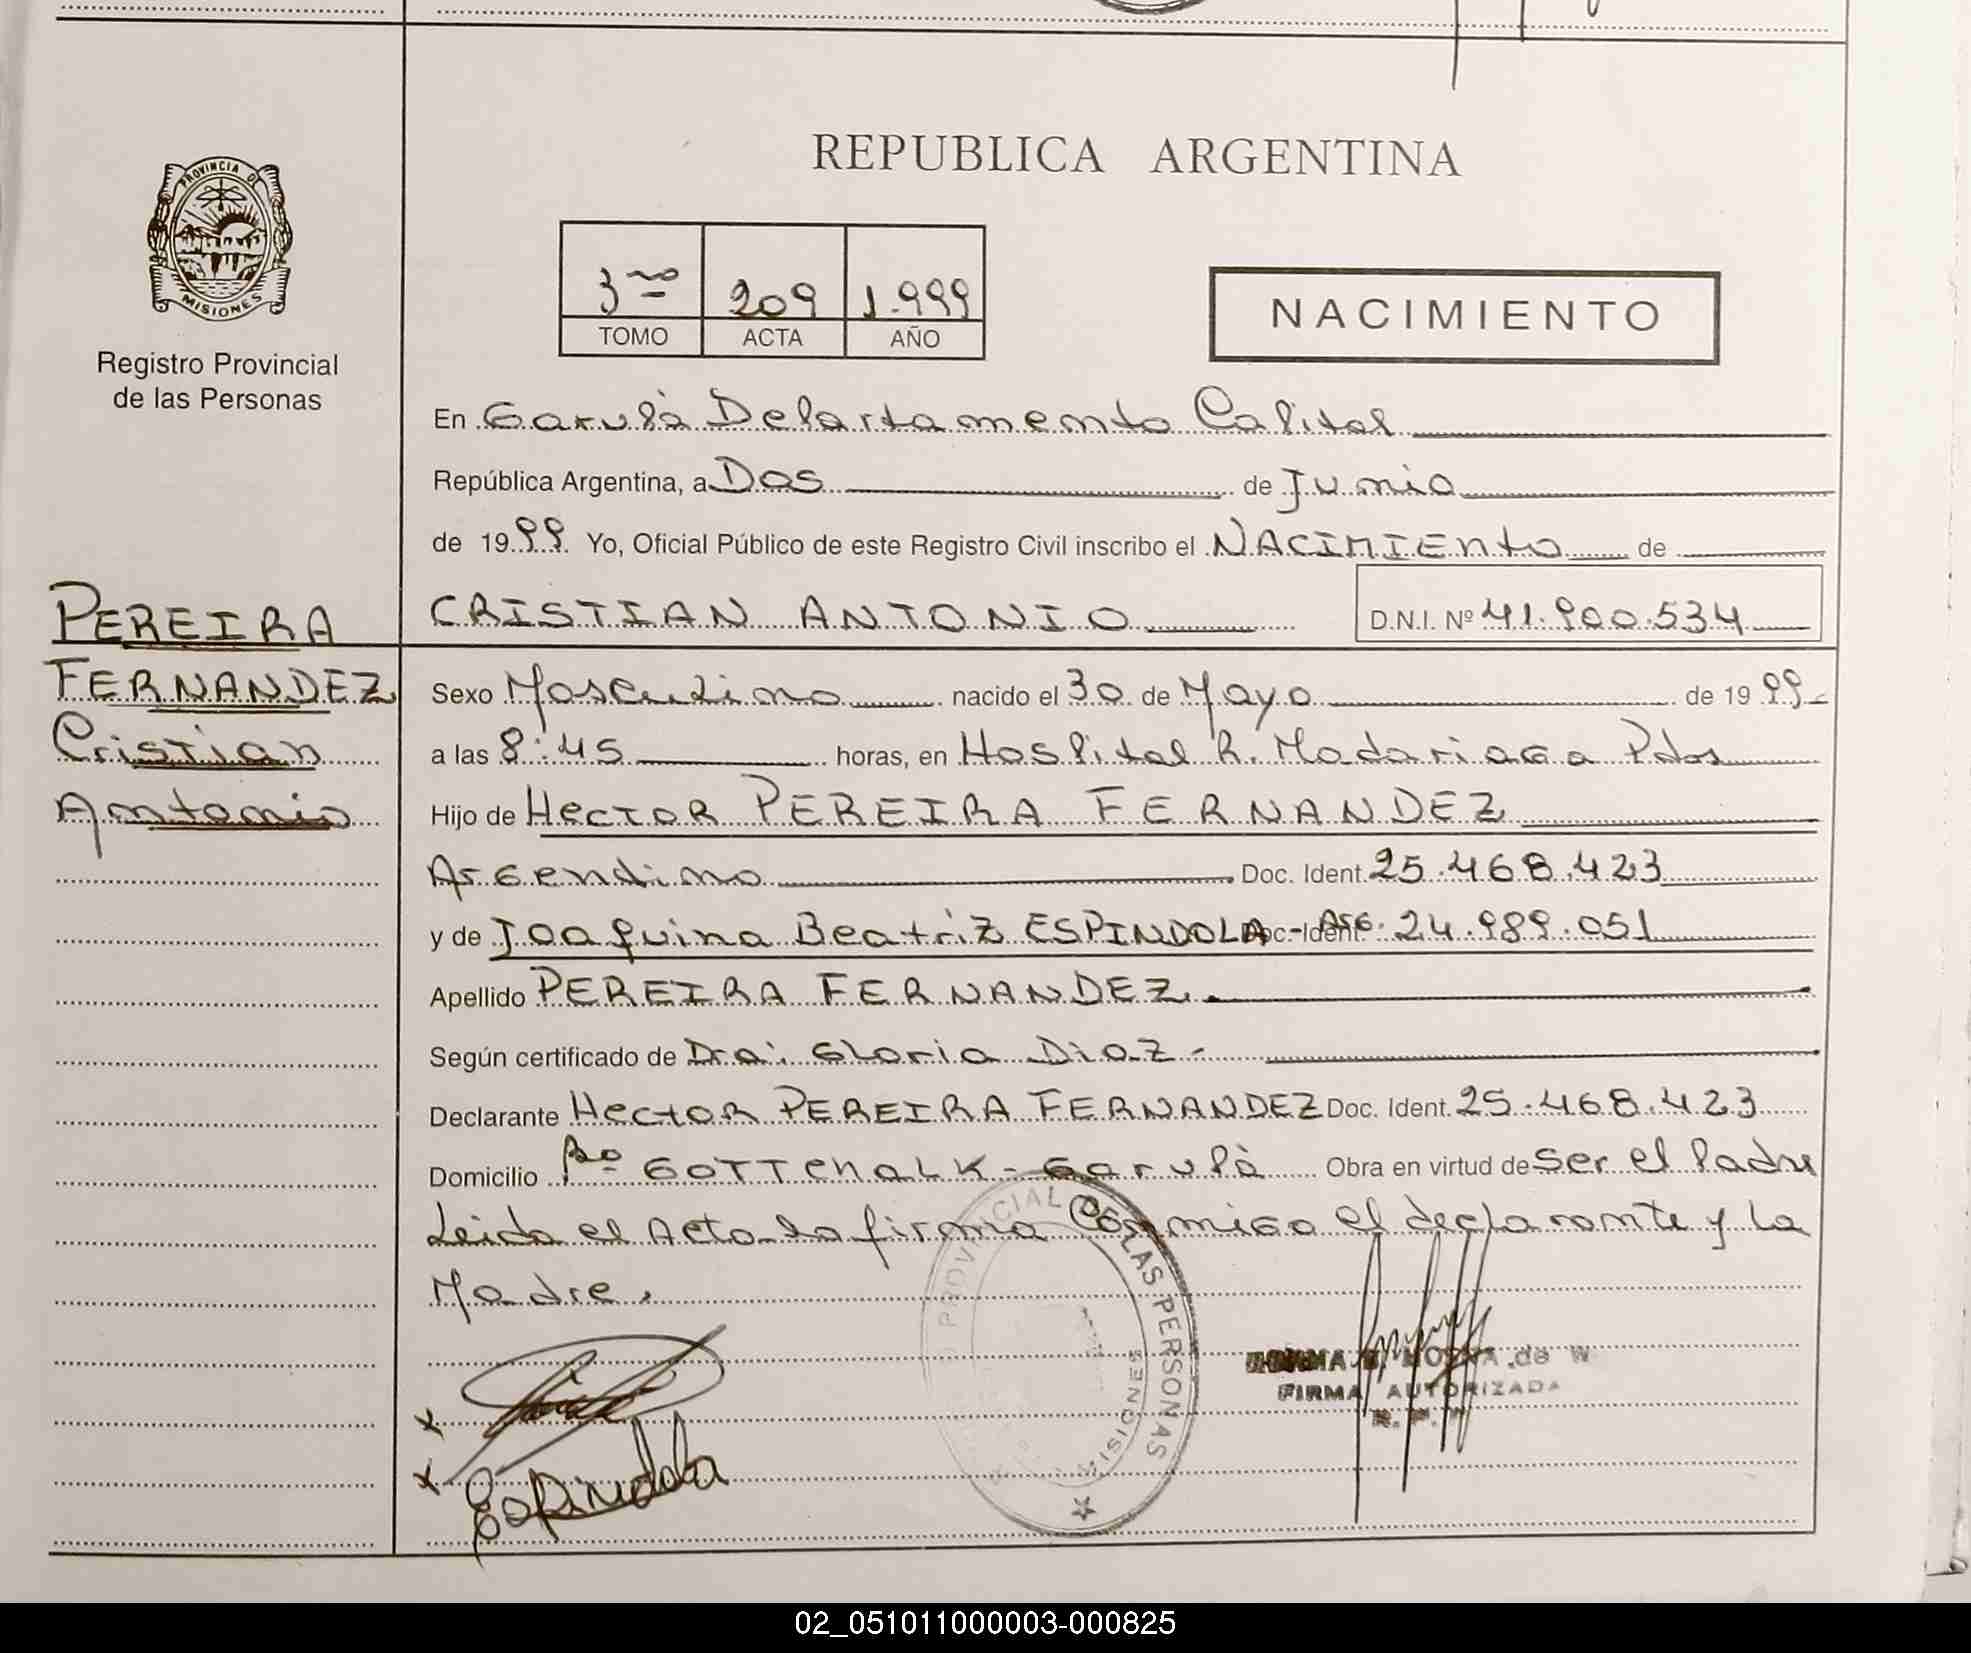 REPUBLICA ARGENTINA
PROVINCIA DE
MISIONES
Registro Provincial
de las Personas
3ro 209 1.999
TOMO ACTA AÑO
NACIMIENTO
En Garupà Departamento Capital
República Argentina, a Dos de Junio
de 1999. Yo, Oficial Público de este Registro Civil inscribo el NACIMIENto de
CRISTIAN ANTONIO D.N.I. Nº 41.900.534
PEREIRA
FERNANDEZ
Cristian
Antonio
Sexo Masculino nacido el 30 de Mayo de 1999-
a las 8:45 horas, en Hospital R. Madariaga Pdas
Hijo de HECTOR PEREIRA FERNANDEZ
Argentino Doc. Ident. 25.468.423
y de Joaquina Beatriz ESPINDOLA - Arg. Doc. Ident. 24.989.051
Apellido PEREIRA FERNANDEZ.
Según certificado de Dra: Gloria Diaz -
Declarante Hector PEREIRA FERNANDEZ Doc. Ident. 25.468.423
Domicilio Bo GOTTCHALK - Garupà Obra en virtud de Ser el Padre
Leido el Acto lo firma Conmigo el declarante y La
Madre.
PROVINCIAL LAS PERSONAS
MISIONES
de W
FIRMA AUTORIZADA
x
x Espindola
02_051011000003-000825